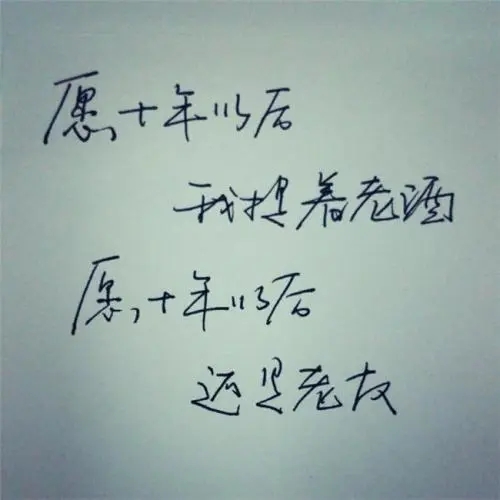 愿十年以后
我提着老酒
愿十年以后
还是老友